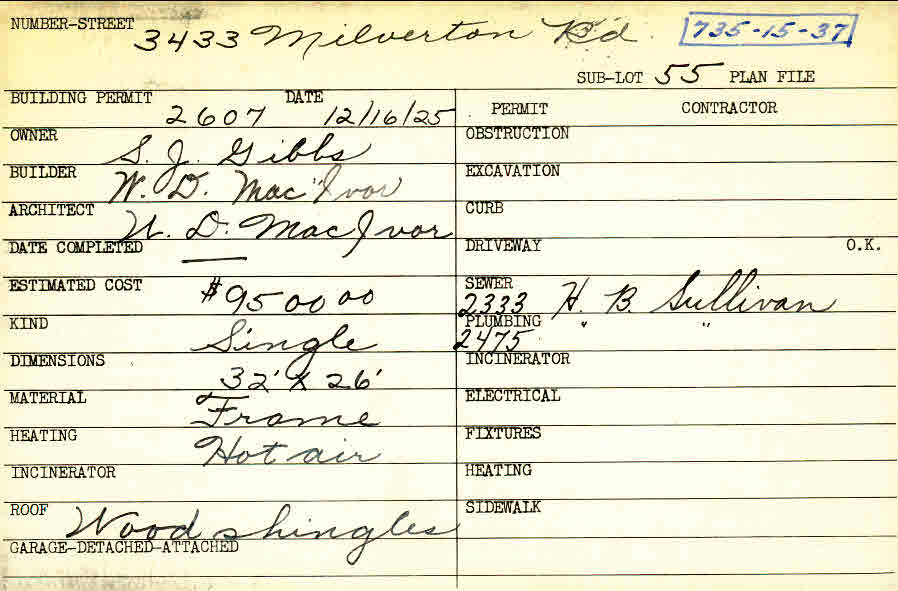 NUMBER-STREET 3433 Milverton Rd. 735-15-37
SUB-LOT 55 PLAN FILE
BUILDING PERMIT 2607 DATE 12/16/25
PERMIT CONTRACTOR
OWNER S. J. Gibbs
OBSTRUCTION
BUILDER W. D. MacIvor
EXCAVATION
ARCHITECT W. D. MacIvor
CURB
DATE COMPLETED —
DRIVEWAY O.K.
ESTIMATED COST $9500 00
SEWER 2333 H. B. Sullivan
KIND Single
PLUMBING 2475 " "
DIMENSIONS 32' x 26'
INCINERATOR
MATERIAL Frame
ELECTRICAL
HEATING Hot air
FIXTURES
INCINERATOR
HEATING
ROOF Wood shingles
SIDEWALK
GARAGE-DETACHED-ATTACHED